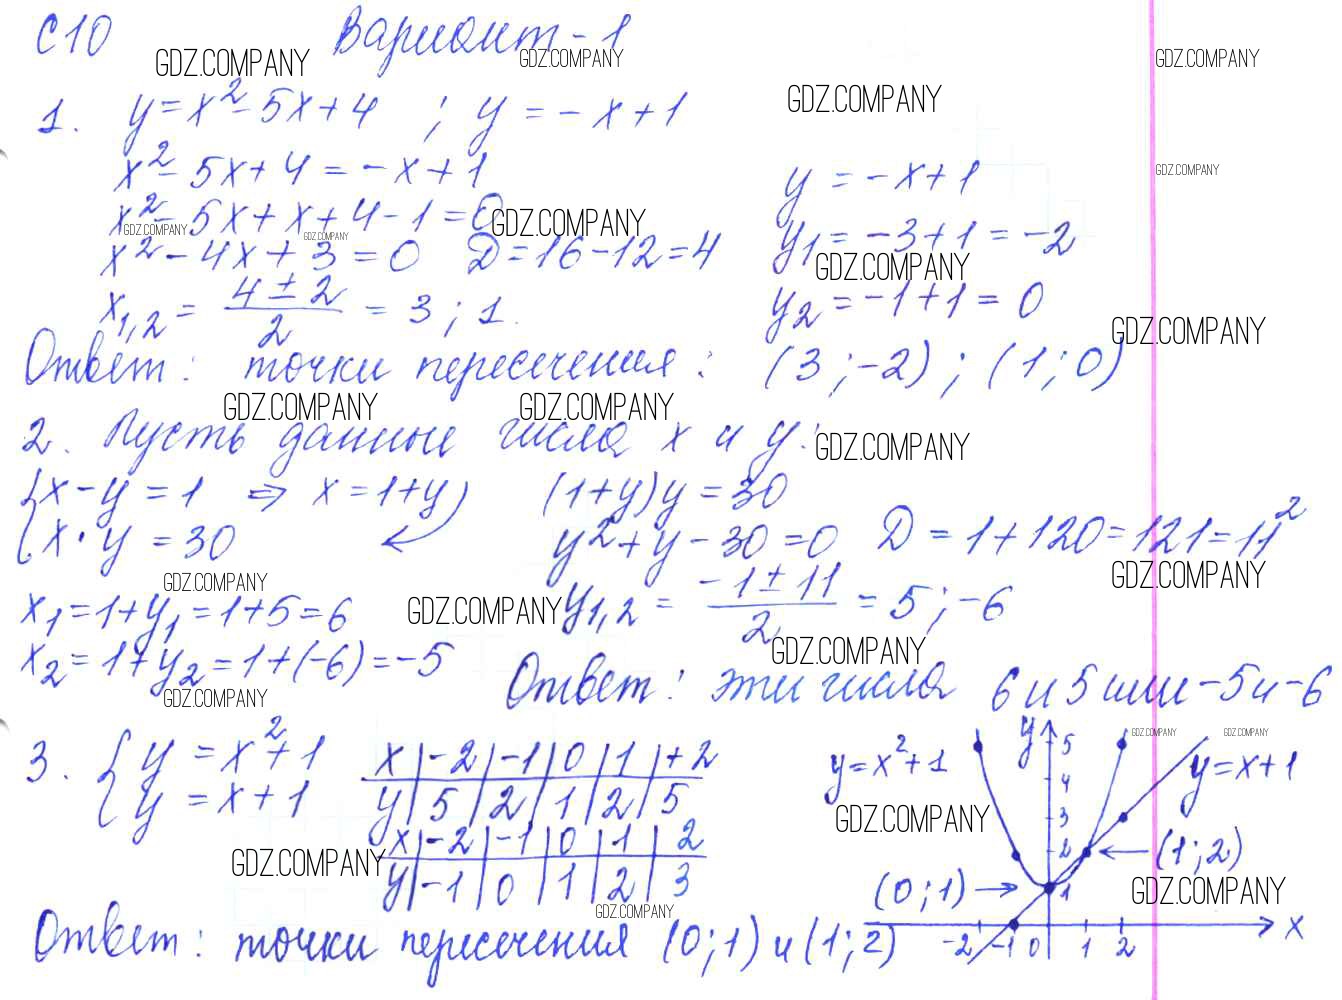 С10 Вариант-1
GDZ.COMPANY GDZ.COMPANY GDZ.COMPANY
1. y = x² - 5x + 4 ; y = - x + 1
GDZ.COMPANY
x² - 5x + 4 = - x + 1
y = -x + 1
GDZ.COMPANY
x² - 5x + x + 4 - 1 = 0
GDZ.COMPANY GDZ.COMPANY GDZ.COMPANY
x² - 4x + 3 = 0 D = 16 - 12 = 4
y₁ = -3 + 1 = -2
GDZ.COMPANY
x₁,₂ = (4 ± 2)/2 = 3 ; 1.
y₂ = -1 + 1 = 0
GDZ.COMPANY
Ответ: точки пересечения: (3 ; -2) ; (1 ; 0)
GDZ.COMPANY GDZ.COMPANY
2. Пусть данные числа x и y:
GDZ.COMPANY
{x - y = 1 ⇒ x = 1 + y) (1 + y) y = 30
{x · y = 30 y² + y - 30 = 0 D = 1 + 120 = 121 = 11²
GDZ.COMPANY GDZ.COMPANY
x₁ = 1 + y₁ = 1 + 5 = 6 GDZ.COMPANY y₁,₂ = (-1 ± 11)/2 = 5 ; -6
GDZ.COMPANY
x₂ = 1 + y₂ = 1 + (-6) = -5
Ответ: эти числа 6 и 5 или -5 и -6
GDZ.COMPANY
3. { y = x² + 1
y = x + 1
x | -2 | -1 | 0 | 1 | +2
y | 5 | 2 | 1 | 2 | 5
x | -2 | -1 | 0 | 1 | 2
y | -1 | 0 | 1 | 2 | 3
GDZ.COMPANY
GDZ.COMPANY
y = x² + 1
y
GDZ.COMPANY GDZ.COMPANY
y = x + 1
5
4
3
2
1
GDZ.COMPANY
(1 ; 2)
(0 ; 1)
GDZ.COMPANY
-2 -1 0 1 2 x
Ответ: точки пересечения (0 ; 1) и (1 ; 2)